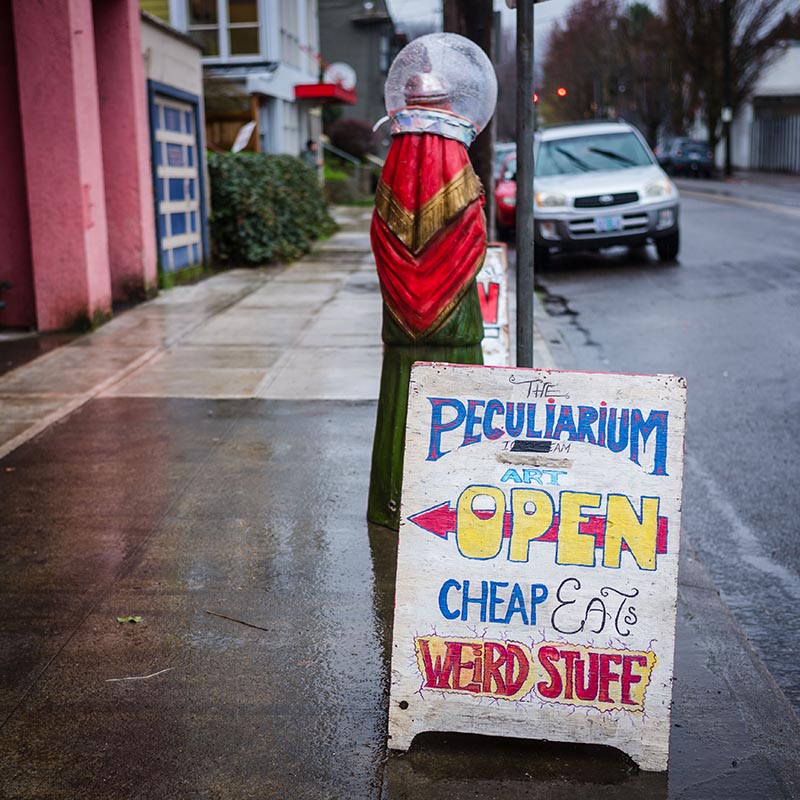 THE
PECULIARIUM
ART
OPEN
CHEAP EATS
WEIRD STUFF